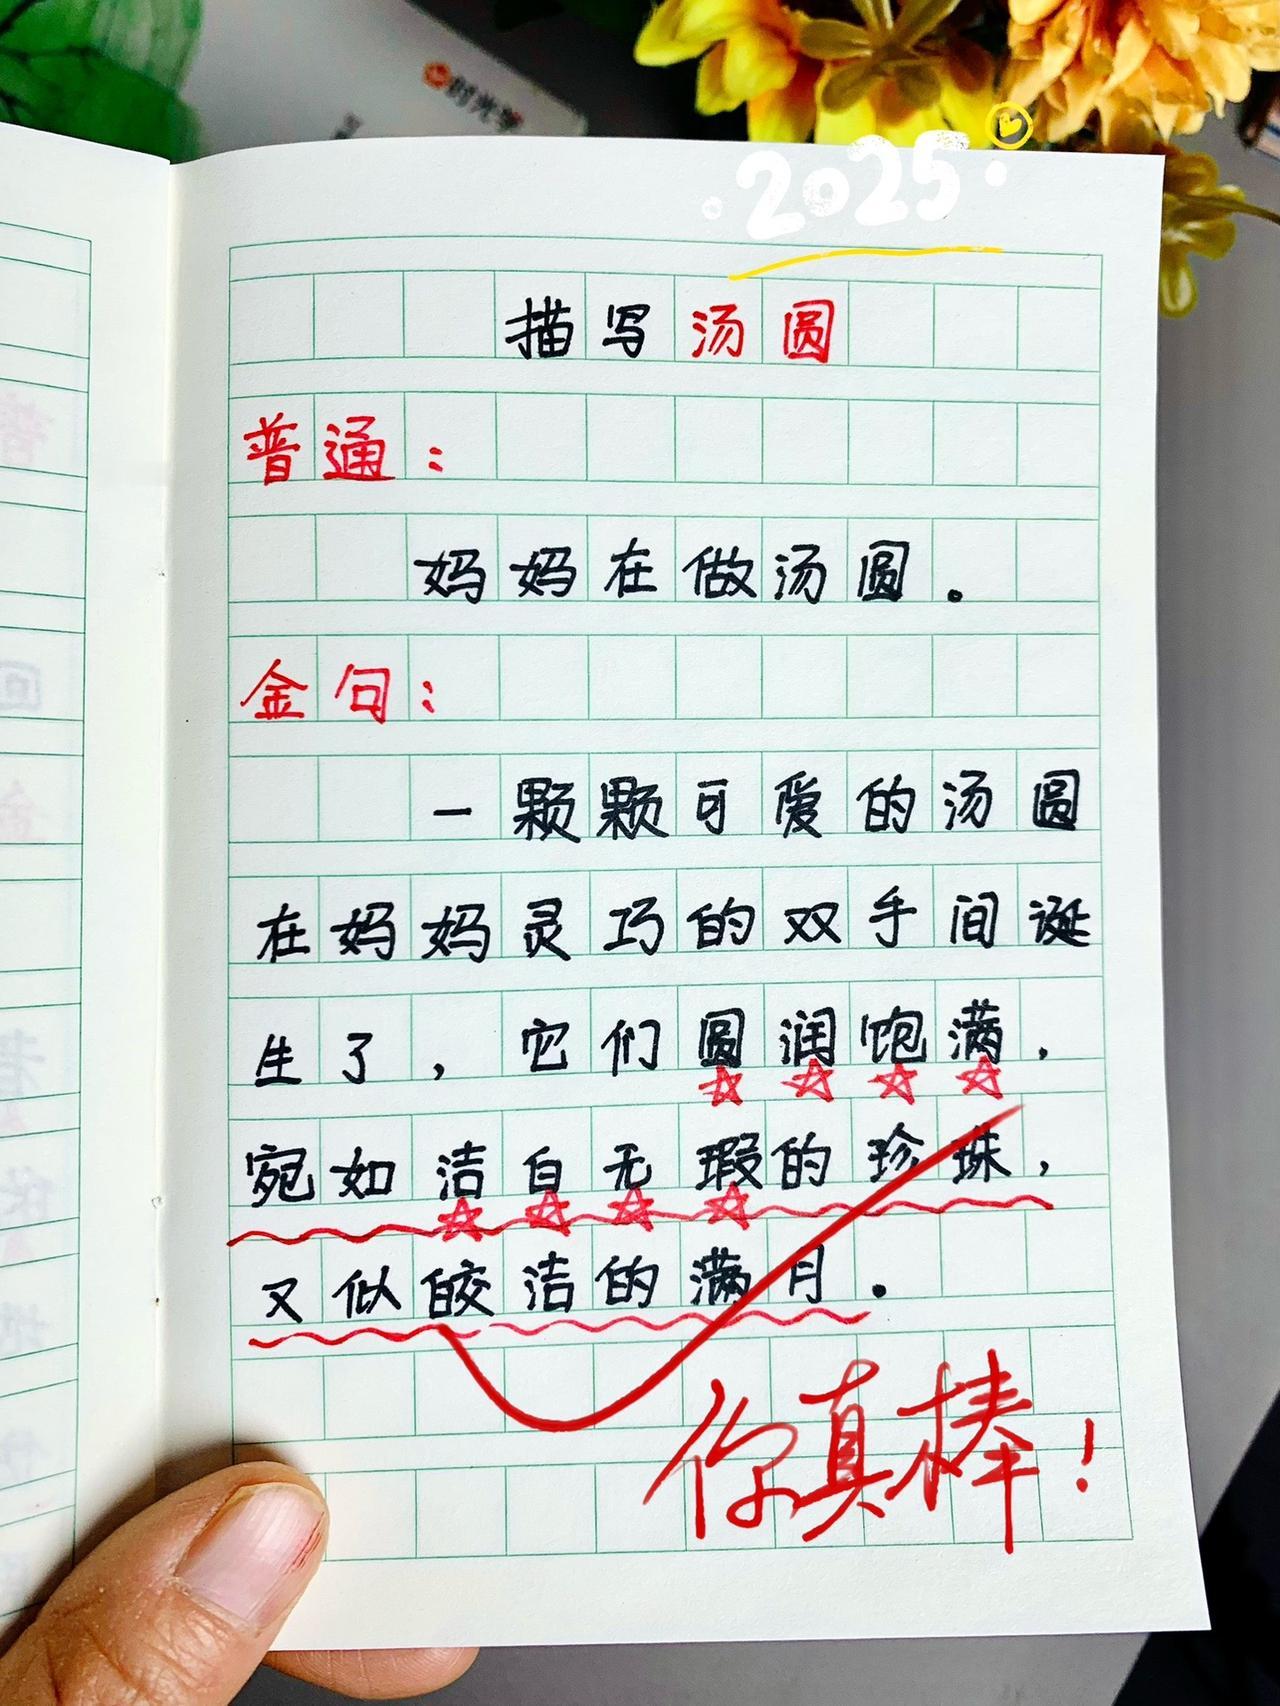 时光学
2025
描写汤圆
普通：
妈妈在做汤圆。
金句：
一颗颗可爱的汤圆
在妈妈灵巧的双手间诞
生了，它们圆润饱满，
宛如洁白无瑕的珍珠，
又似皎洁的满月。
你真棒！